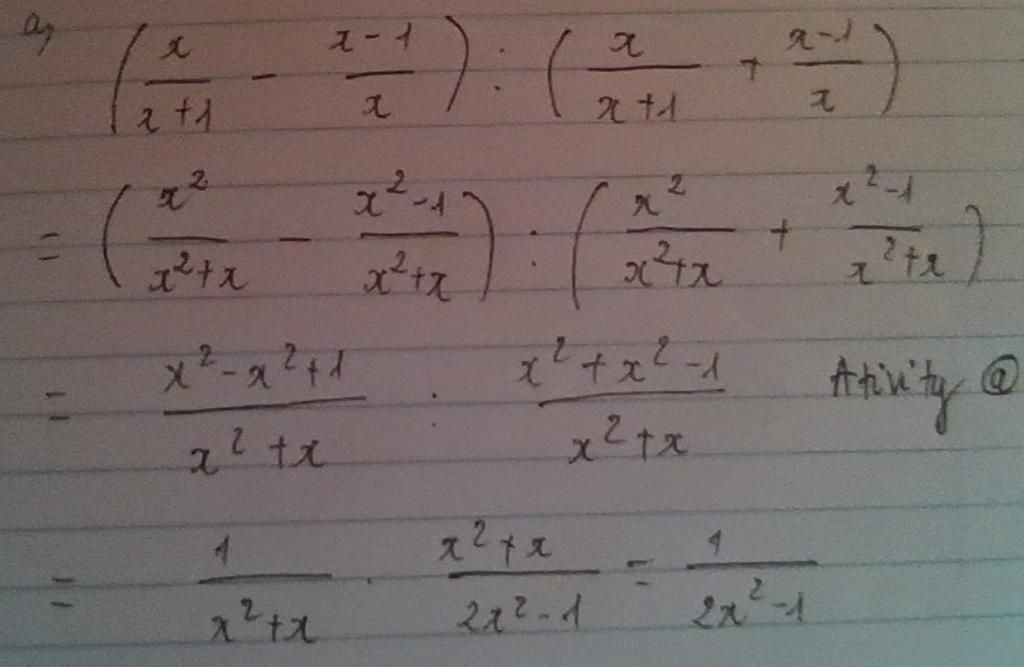 a, (x/(x+1) - (x-1)/x) : (x/(x+1) + (x-1)/x)
= (x²/(x²+x) - (x²-1)/(x²+x)) : (x²/(x²+x) + (x²-1)/(x²+x))
= (x²-x²+1)/(x²+x) : (x²+x²-1)/(x²+x) Ativity @
= 1/(x²+x) . (x²+x)/(2x²-1) = 1/(2x²-1)